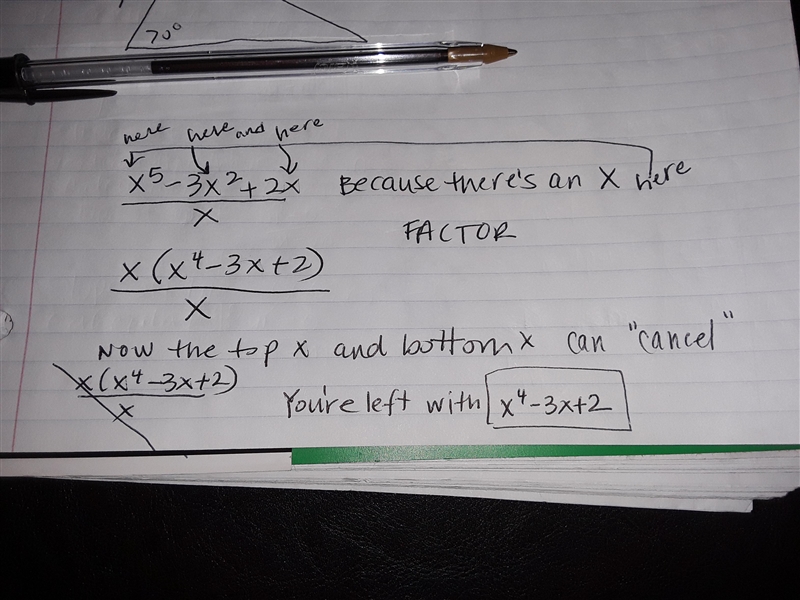 70°
here here and here
x⁵-3x²+2x Because there's an x here
x
FACTOR
x(x⁴-3x+2)
x
NOW the top x and bottom x can "cancel"
x(x⁴-3x+2)
x
You're left with x⁴-3x+2